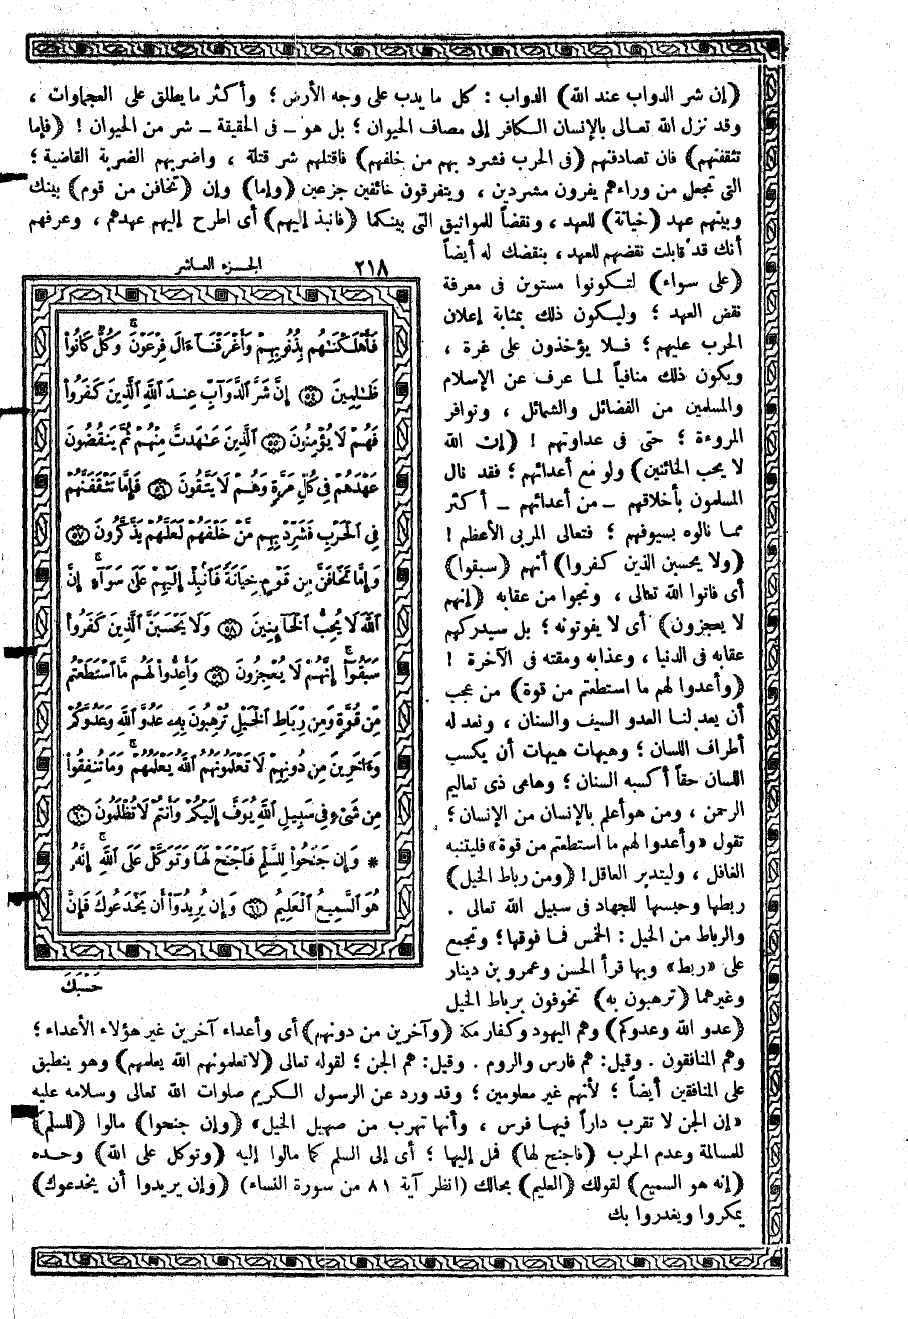 (إن شر الدواب عند الله) الدواب : كل ما يدب على وجه الأرض ؛ وأكثر ما يطلق على العجماوات ،
وقد نزل الله تعالى بالإنسان الكافر إلى مصاف الحيوان ؛ بل هو ــ فى الحقيقة ــ شر من الحيوان ! (فإما
تثقفنهم) فان تصادفنهم (فى الحرب فشرد بهم من خلفهم) فاقتلهم شر قتلة ، واضربهم الضربة القاضية ؛
التى تجعل من وراءهم يفرون مشردين ، ويتفرقون خائفين جزعين (وإما) وإن (تخافن من قوم) بينك
وبينهم عهد (خيانة) للعهد ، ونقضاً للمواثيق التى بينكما (فانبذ إليهم) أى اطرح إليهم عهدهم ، وعرفهم
أنك قد قابلت نقضهم للعهد ، بنقضك له أيضاً
(على سواء) لتكونوا مستوين فى معرفة
نقض العهد ؛ وليكون ذلك بمثابة إعلان
الحرب عليهم ؛ فلا يؤخذون على غرة ،
ويكون ذلك منافياً لما عرف عن الإسلام
والمسلمين من الفضائل والشمائل ، وتوافر
المروءة ؛ حتى فى عداوتهم ! (إن الله
لا يحب الخائنين) ولو مع أعدائهم ؛ فقد نال
المسلمون بأخلاقهم ــ من أعدائهم ــ أكثر
مما نالوه بسيوفهم ؛ فتعالى المربى الأعظم !
(ولا يحسبن الذين كفروا) أنهم (سبقوا)
أى فاتوا الله تعالى ، ونجوا من عقابه (إنهم
لا يعجزون) أى لا يفوتونه ؛ بل سيدركهم
عقابه فى الدنيا ، وعذابه ومقته فى الآخرة !
(وأعدوا لهم ما استطعتم من قوة) من عجب
أن يعد لنا العدو السيف والسنان ، ونعد له
أطراف اللسان ؛ وهيهات هيهات أن يكسب
اللسان حقاً أكسبه السنان ؛ وهاهى ذى تعاليم
الرحمن ، ومن هو أعلم بالإنسان من الإنسان ؛
تقول «وأعدوا لهم ما استطعتم من قوة» فليتنبه
الغافل ، وليتدبر العاقل! (ومن رباط الخيل)
ربطها وحبسها للجهاد فى سبيل الله تعالى .
والرباط من الخيل : الخمس فما فوقها ؛ وتجمع
على «ربط» وبها قرأ الحسن وعمرو بن دينار
وغيرهما (ترهبون به) تخوفون برباط الخيل
٢١٨ الجزء العاشر
فَأَهْلَكْنَٰهُم بِذُنُوبِهِمْ وَأَغْرَقْنَآ ءَالَ فِرْعَوْنَ ۚ وَكُلٌّ كَانُوا۟
ظَٰلِمِينَ ۝٥٤ إِنَّ شَرَّ ٱلدَّوَآبِّ عِندَ ٱللَّهِ ٱلَّذِينَ كَفَرُوا۟
فَهُمْ لَا يُؤْمِنُونَ ۝٥٥ ٱلَّذِينَ عَٰهَدتَّ مِنْهُمْ ثُمَّ يَنقُضُونَ
عَهْدَهُمْ فِى كُلِّ مَرَّةٍ وَهُمْ لَا يَتَّقُونَ ۝٥٦ فَإِمَّا تَثْقَفَنَّهُمْ
فِى ٱلْحَرْبِ فَشَرِّدْ بِهِم مَّنْ خَلْفَهُمْ لَعَلَّهُمْ يَذَّكَّرُونَ ۝٥٧
وَإِمَّا تَخَافَنَّ مِن قَوْمٍ خِيَانَةً فَٱنۢبِذْ إِلَيْهِمْ عَلَىٰ سَوَآءٍ ۚ إِنَّ
ٱللَّهَ لَا يُحِبُّ ٱلْخَآئِنِينَ ۝٥٨ وَلَا يَحْسَبَنَّ ٱلَّذِينَ كَفَرُوا۟
سَبَقُوٓا۟ ۚ إِنَّهُمْ لَا يُعْجِزُونَ ۝٥٩ وَأَعِدُّوا۟ لَهُم مَّا ٱسْتَطَعْتُم
مِّن قُوَّةٍ وَمِن رِّبَاطِ ٱلْخَيْلِ تُرْهِبُونَ بِهِۦ عَدُوَّ ٱللَّهِ وَعَدُوَّكُمْ
وَءَاخَرِينَ مِن دُونِهِمْ لَا تَعْلَمُونَهُمُ ٱللَّهُ يَعْلَمُهُمْ ۚ وَمَا تُنفِقُوا۟
مِن شَىْءٍ فِى سَبِيلِ ٱللَّهِ يُوَفَّ إِلَيْكُمْ وَأَنتُمْ لَا تُظْلَمُونَ ۝٦٠
* وَإِن جَنَحُوا۟ لِلسَّلْمِ فَٱجْنَحْ لَهَا وَتَوَكَّلْ عَلَى ٱللَّهِ ۚ إِنَّهُۥ
هُوَ ٱلسَّمِيعُ ٱلْعَلِيمُ ۝٦١ وَإِن يُرِيدُوٓا۟ أَن يَخْدَعُوكَ فَإِنَّ
حَسْبَكَ
(عدو الله وعدوكم) وهم اليهود وكفار مكة (وآخرين من دونهم) أى وأعداء آخرين غير هؤلاء الأعداء ؛
وهم المنافقون . وقيل : هم فارس والروم . وقيل : هم الجن ؛ لقوله تعالى (لاتعلمونهم الله يعلمهم) وهو ينطبق
على المنافقين أيضاً ؛ لأنهم غير معلومين ؛ وقد ورد عن الرسول الكريم صلوات الله تعالى وسلامه عليه
«إن الجن لا تقرب داراً فيها فرس ، وأنها تهرب من صهيل الخيل» (وإن جنحوا) مالوا (للسلم)
للمسالمة وعدم الحرب (فاجنح لها) فمل إليها ؛ أى إلى السلم كما مالوا إليه (وتوكل على الله) وحده
(إنه هو السميع) لقولك (العليم) بحالك (انظر آية ٨١ من سورة النساء) (وإن يريدوا أن يخدعوك)
يمكروا ويغدروا بك